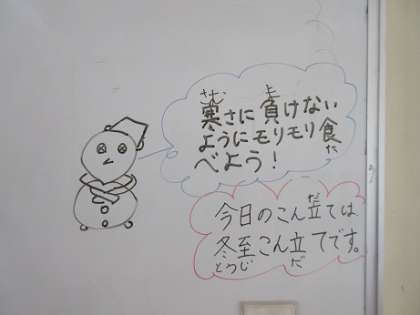 さむ ま
寒さに負けない
ようにモリモリ食
た
べよう!
だ
今日のこん立ては
冬至こん立てです。
とうじ だ